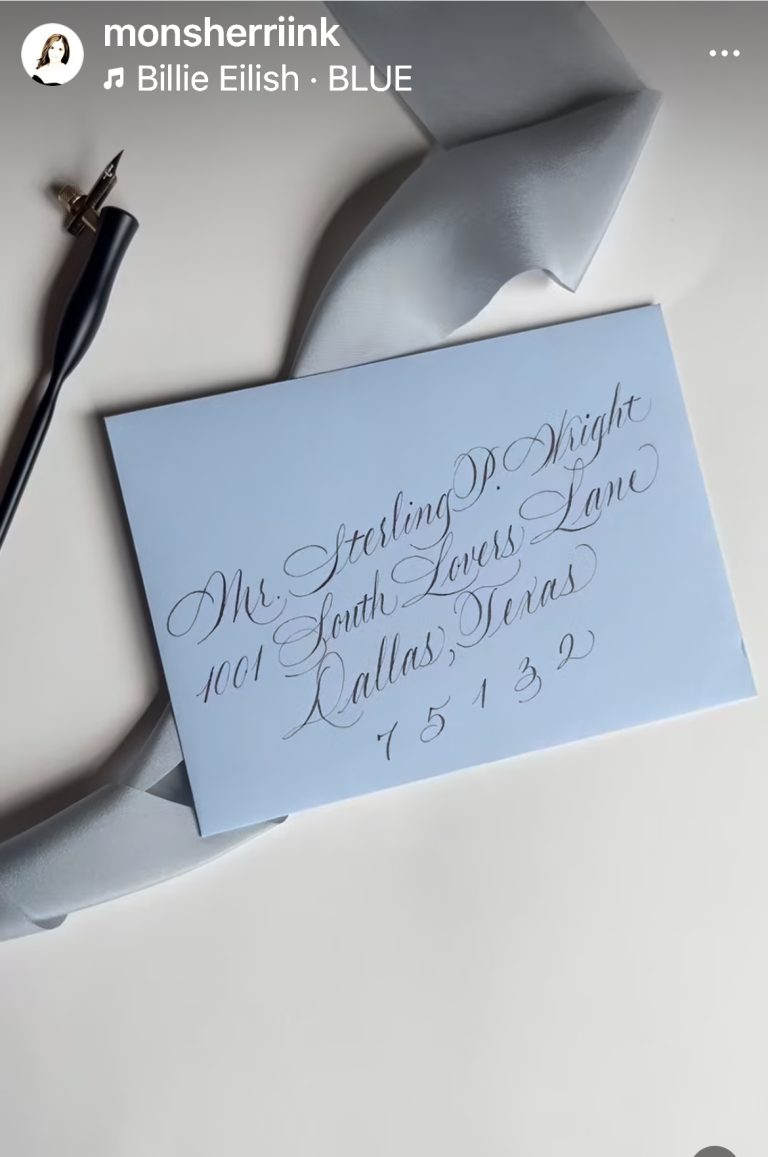 monsherriink
Billie Eilish · BLUE
Mr. Sterling P. Wright
1001 South Lovers Lane
Dallas, Texas
75132